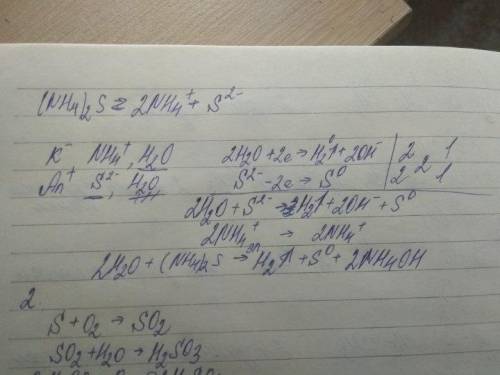 (NH4)2S ⇄ 2NH4⁺ + S²⁻
K⁻ NH4⁺, H2O 2H2O + 2e → H2⁰↑ + 2OH⁻ | 2 | 1
An⁺ S²⁻, H2O S²⁻ - 2e → S⁰ | 2 | 2 | 1
2H2O + S²⁻ → H2↑ + 2OH⁻ + S⁰
2NH4⁺ → 2NH4⁺
2H2O + (NH4)2S →эл H2↑ + S⁰ + 2NH4OH
2
S + O2 → SO2
SO2 + H2O → H2SO3